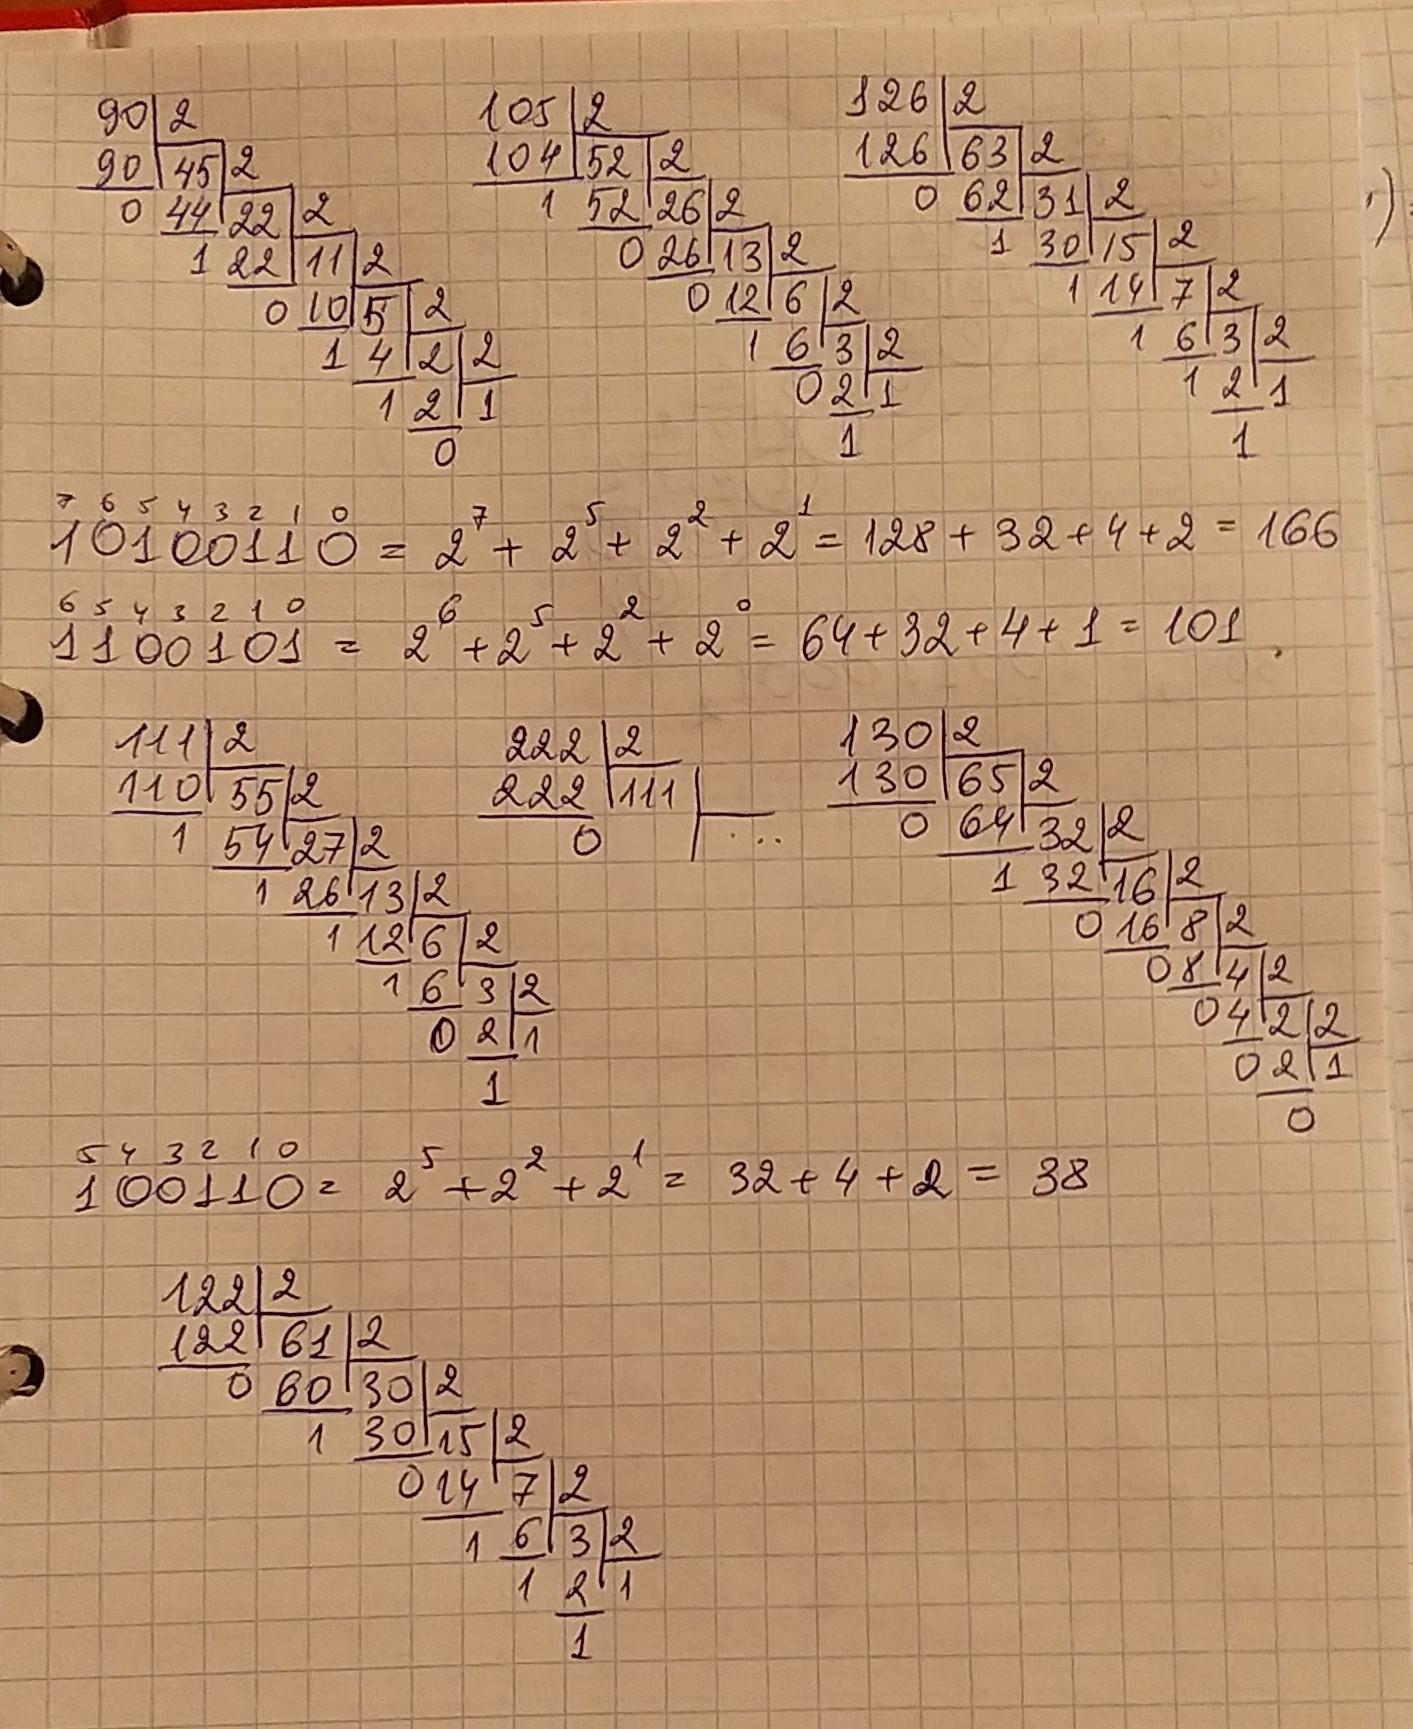 90 2 105 2 126 2
90 45 2 104 52 2 126 63 2
0 44 22 2 1 52 26 2 0 62 31 2
1 22 11 2 0 26 13 2 1 30 15 2
0 10 5 2 0 12 6 2 1 14 7 2
1 4 2 2 1 6 3 2 1 6 3 2
1 2 1 0 2 1 1 2 1
0 1 1
7 6 5 4 3 2 1 0
10100110 = 2^7 + 2^5 + 2^2 + 2^1 = 128 + 32 + 4 + 2 = 166
6 5 4 3 2 1 0
1100101 = 2^6 + 2^5 + 2^2 + 2^0 = 64 + 32 + 4 + 1 = 101
111 2 222 2 130 2
110 55 2 222 111 130 65 2
1 54 27 2 0 ... 0 64 32 2
1 26 13 2 1 32 16 2
1 12 6 2 0 16 8 2
1 6 3 2 0 8 4 2
0 2 1 0 4 2 2
1 0 2 1
0
5 4 3 2 1 0
100110 = 2^5 + 2^2 + 2^1 = 32 + 4 + 2 = 38
122 2
122 61 2
0 60 30 2
1 30 15 2
0 14 7 2
1 6 3 2
1 2 1
1